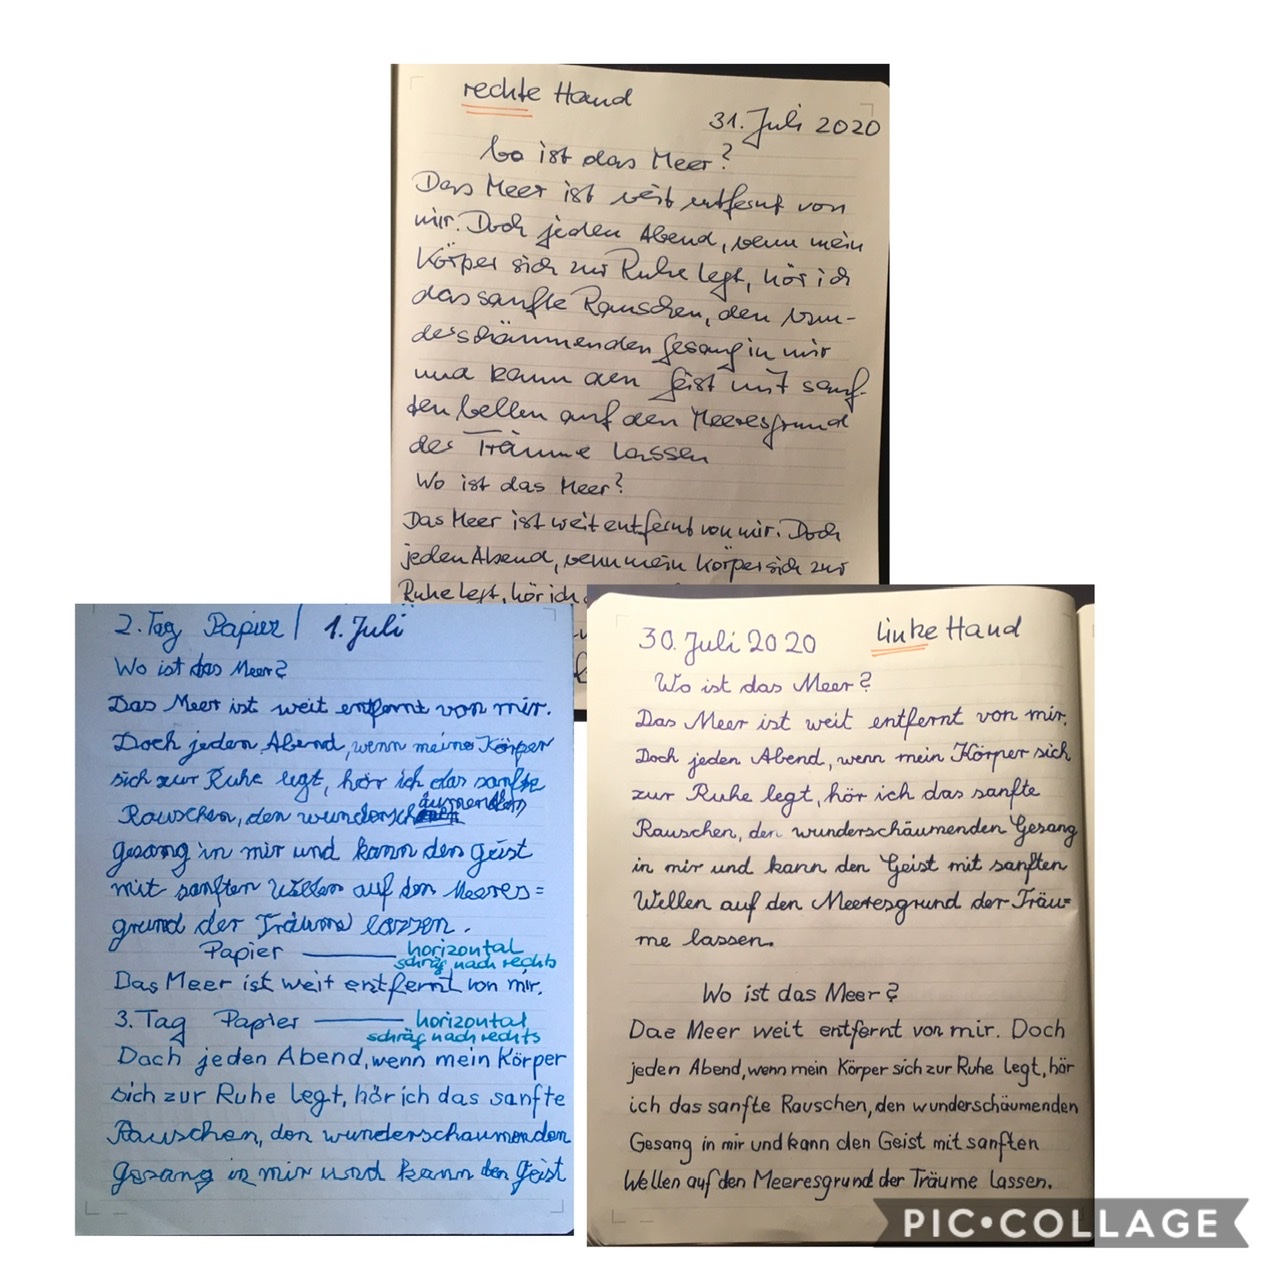 rechte Hand
31. Juli 2020
Wo ist das Meer?
Das Meer ist weit entfernt von
mir. Doch jeden Abend, wenn mein
Körper sich zur Ruhe legt, hör ich
das sanfte Rauschen, den wun-
derschäumenden Gesang in mir
und kann den Geist mit sanf-
ten Wellen auf den Meeresgrund
der Träume lassen
Wo ist das Meer?
Das Meer ist weit entfernt von mir. Doch
jeden Abend, wenn mein Körper sich zur
Ruhe legt, hör ich
2. Tag Papier / 1. Juli
Wo ist das Meer?
Das Meer ist weit entfernt von mir.
Doch jeden Abend, wenn meine Körper
sich zur Ruhe legt, hör ich das sanfte
Rauschen, den wunderschäumenden
Gesang in mir und kann den Geist
mit sanften Wellen auf den Meeres=
grund der Träume lassen.
Papier — horizontal
schräg nach rechts
Das Meer ist weit entfernt von mir.
3. Tag Papier — horizontal
schräg nach rechts
Doch jeden Abend, wenn mein Körper
sich zur Ruhe legt, hör ich das sanfte
Rauschen, den wunderschaumenden
Gesang in mir und kann den Geist
30. Juli 2020 linke Hand
Wo ist das Meer?
Das Meer ist weit entfernt von mir.
Doch jeden Abend, wenn mein Körper sich
zur Ruhe legt, hör ich das sanfte
Rauschen, den wunderschäumenden Gesang
in mir und kann den Geist mit sanften
Wellen auf den Meeresgrund der Träu=
me lassen.
Wo ist das Meer?
Dae Meer weit entfernt von mir. Doch
jeden Abend, wenn mein Körper sich zur Ruhe legt, hör
ich das sanfte Rauschen, den wunderschäumenden
Gesang in mir und kann den Geist mit sanften
Wellen auf den Meeresgrund der Träume lassen.
PIC•COLLAGE